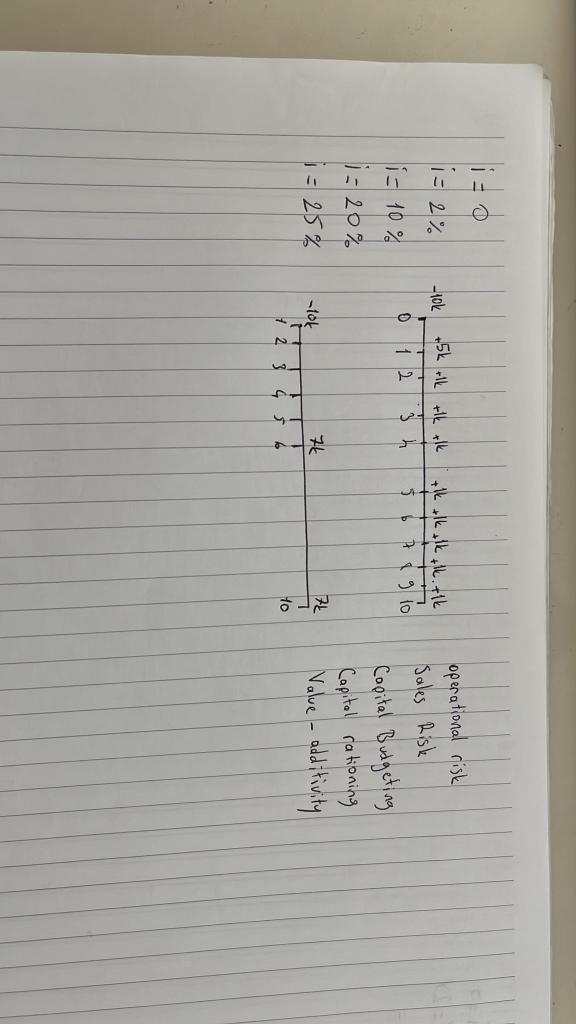 i = 0
i = 2%
i = 10%
i = 20%
i = 25%
-10k +5k +1k +1k +1k +1k +1k +1k +1k +1k
0 1 2 3 4 5 6 7 8 9 10
-10k 7k 7k
1 2 3 4 5 6 10
operational risk
Sales Risk
Capital Budgeting
Capital rationing
Value - additivity